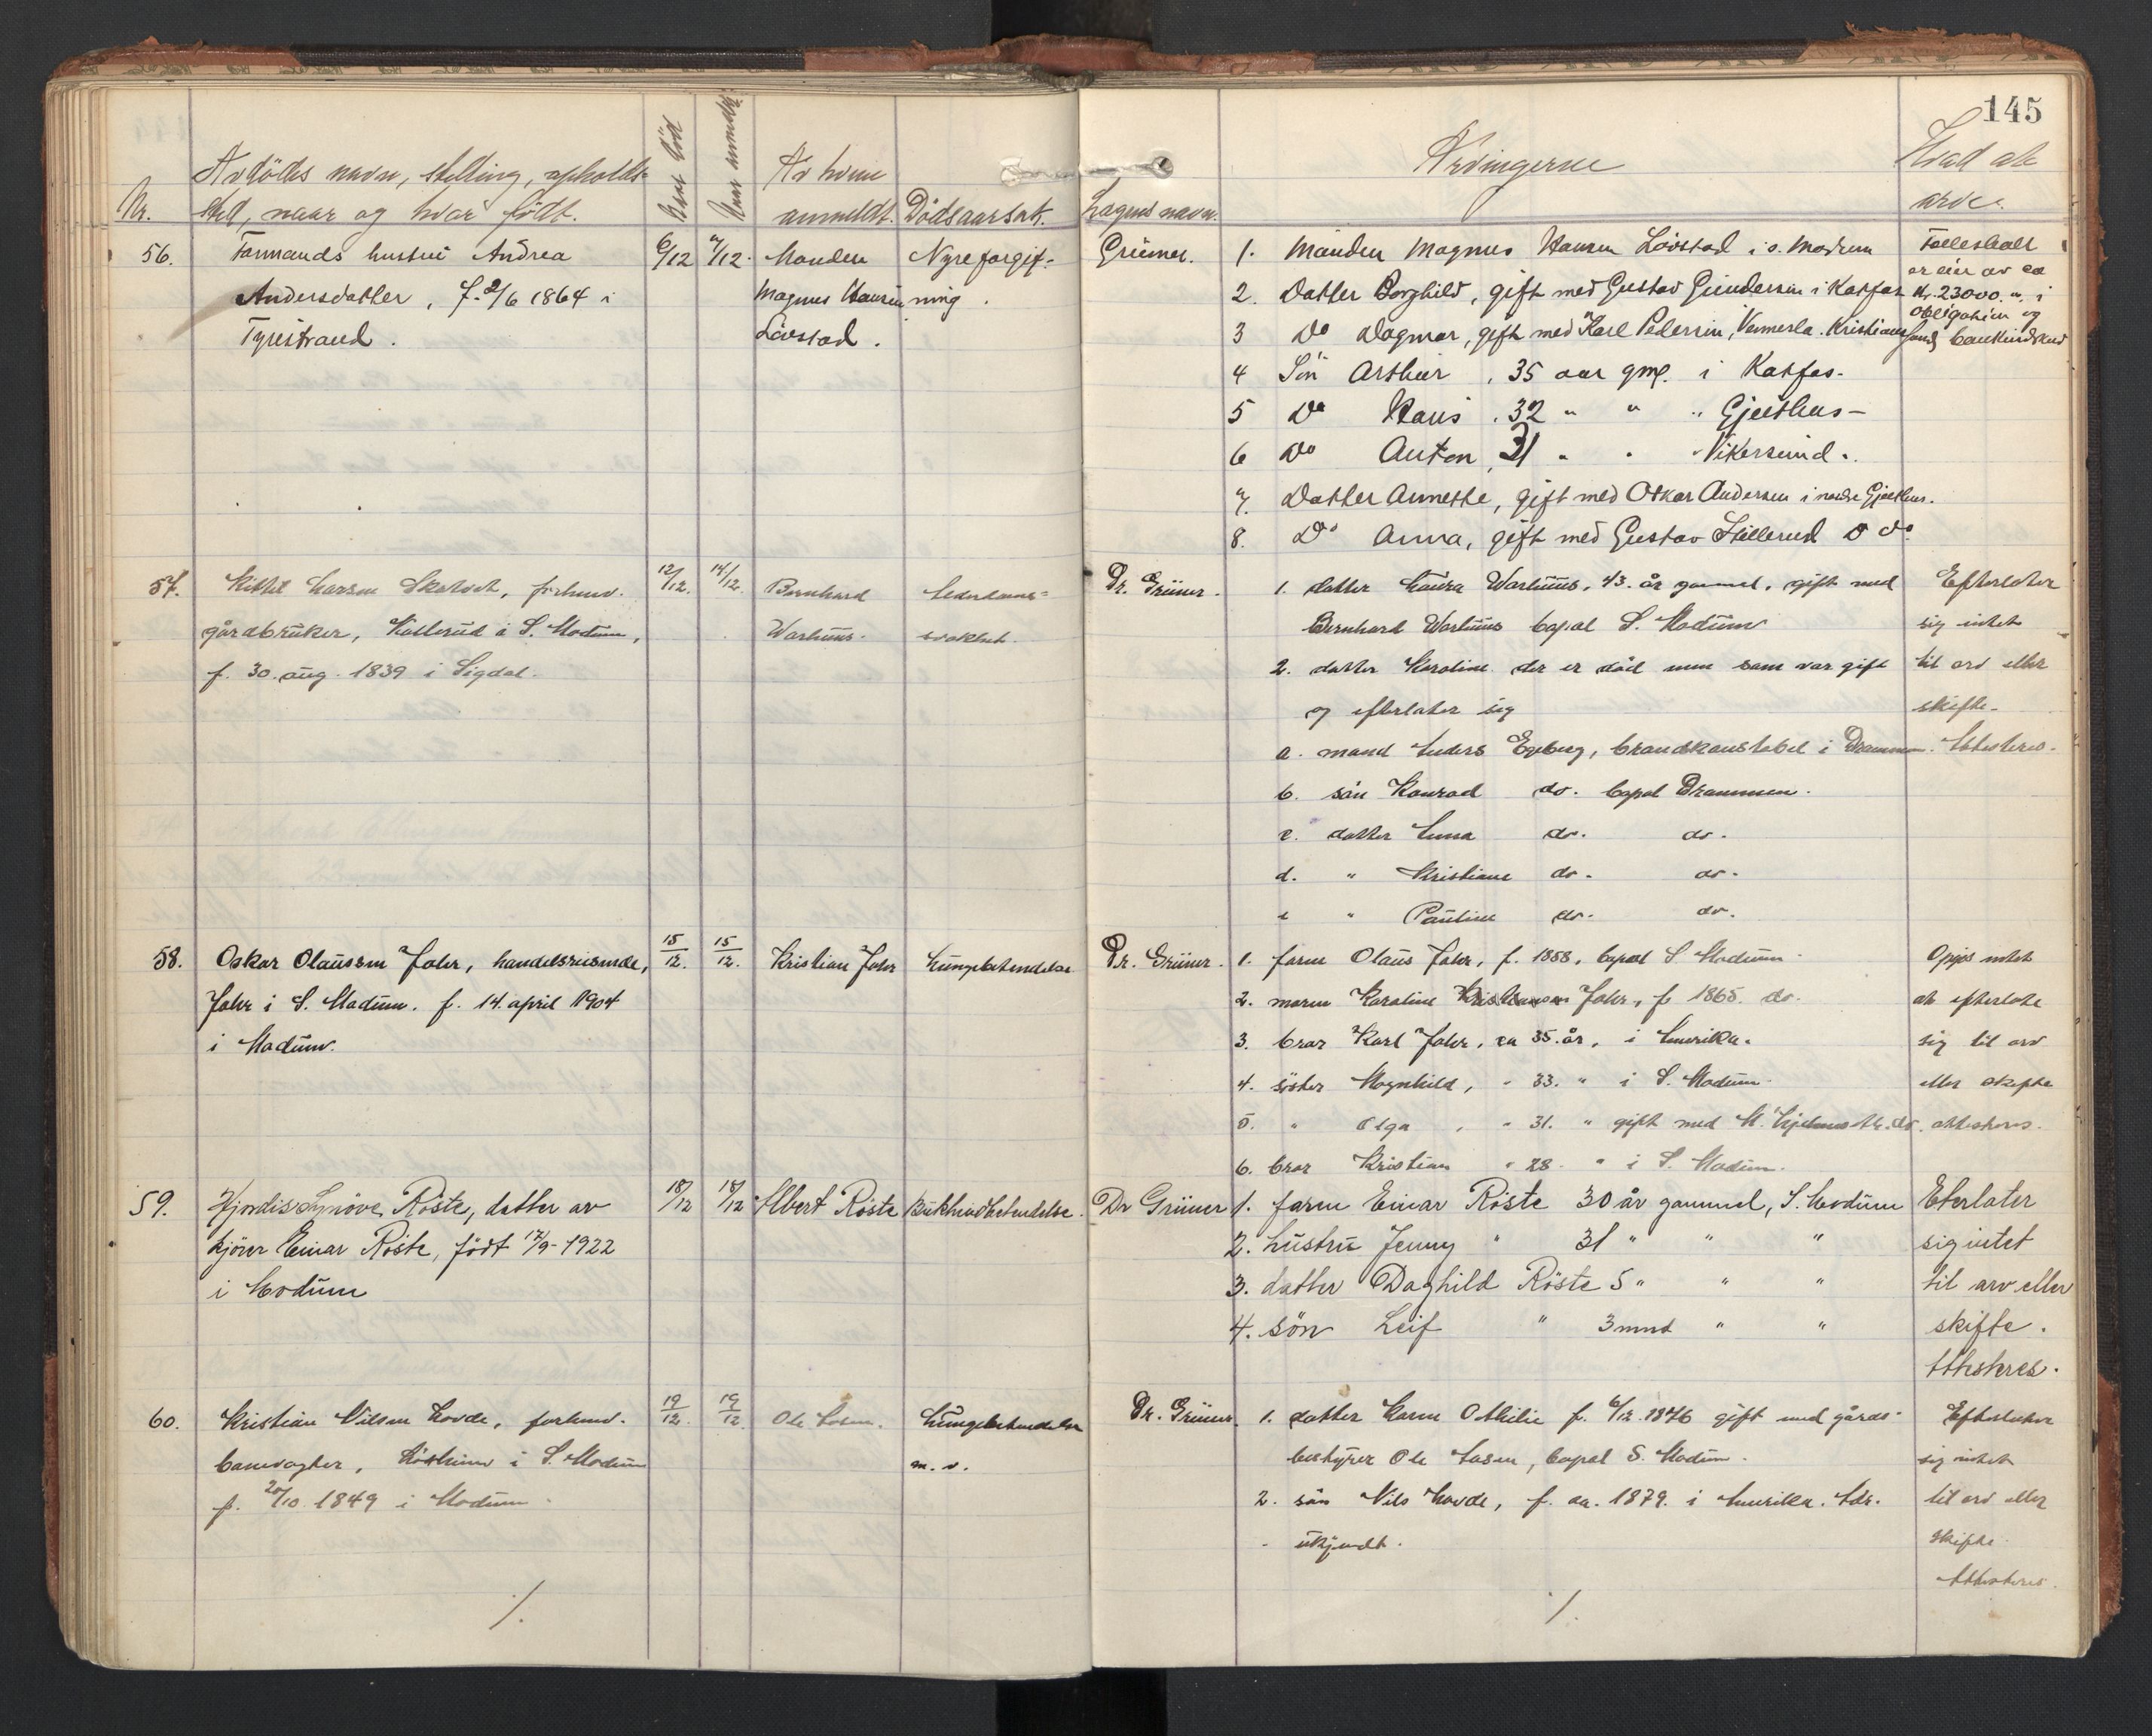 145
Avdødes navn, stilling, opholds-
Nr. sted, naar og hvor født.
Naar død
Naar anmeldt
Av hvem
anmeldt.
Dødsaarsak.
Lægens navn.
Arvingerne
Hvad at
arve.
56. Formands hustru Andrea
Andersdatter, f. 2/6 1864 i
Tyristrand.
6/12 7/12. Manden
Magnus Hansen
Lövstad.
Nyreforgif-
ning.
Grüner.
1. Manden Magnus Hansen Lövstad i s. Modum
2. Datter Borghild, gift med Gustav Gundersen i Katfos
3 Do Dagmar, gift med Karl Pedersen, Vennesla. Kristiansand
4 Sön Arthur, 35 aar gml. i Katfos.
5 Do Hans, 32 " " " Gjeithus-
6 Do Anton, 31 " " " Vikersund.
7. Datter Annette, gift med Oskar Andersen i nordre Gjeithus.
8. Do Anna, gift med Gustav Stillerud D do
Fælleskalt
er eier av ca
Kr. 23000. " i
obligation og
bankinskud
57. Kittil Larsen Skatvet, forhenv.
gårdbruker, Kolterud i S. Modum,
f. 30. aug. 1839 i Sigdal.
12/12. 14/12. Bernhard
Warhuus.
Alderdoms-
svakhet.
Dr. Grüner.
1. datter Laura Warhuus, 43. år gammel, gift med
Bernhard Warhuus bopæl S. Modum
2. datter Karoline der er död men som var gift
og efterlater sig
a. mand Anders Egeberg, brandkonstabel i Drammen.
b. sön Konrad do. bopæl Drammen.
c. datter Anna do. do.
d. " Kristiane do. do.
e " Pauline do. do.
Efterlater
sig intet
til arv eller
skifte.
Attesteres.
58. Oskar Olaussen Jahr, handelsreisende,
Jahr i S. Modum. f. 14. april 1904
i Modum.
15/12. 15/12. Kristian Jahr
Lungebetendelse
Dr. Grüner.
1. farm Olaus Jahr, f. 1858, bopæl S. Modum.
2. moren Karoline Kristiansen Jahr, f 1865. do.
3. bror Karl Jahr, ca 35. år, i Amerika.
4. söster Magnhild, " 33. " i S. Modum.
5. " Olga, " 31. " gift med do.
6. bror Kristian " 28. " i S. Modum.
Opgis intet
at efterlate
sig til arv
eller skifte
attesteres.
59. Hjördis Synöve Röste, datter av
kjörer Einar Röste, født 17/9-1922
i Modum
18/12 18/12 Albert Röste Bukhindbetendelse.
Dr Grüner
1. faren Einar Röste 30 år gammel, S. Modum
2. hustru Jenny " 31 " " "
3. datter Daghild Röste 5 " " "
4. sön Leif " 3 mnd " "
Eterlater
sig intet
til arv eller
skifte.
Attesteres.
60. Kristian Nilsen Hovde, forhenv.
banevogter, i S. Modum
f. 20/10. 1849 i Modum.
19/12. 19/12. Ole
Lungebetendelse
m. v.
Dr. Grüner.
1. datter Karen Othilie f. 6/12. 1876 gift med gårds-
bestyrer Ole, bopæl S. Modum.
2. sön Nils Hovde, f. ca. 1879. i Amerika. Adr.
ukjendt.
Efterlater
sig intet
til arv eller
skifte.
Attesteres.